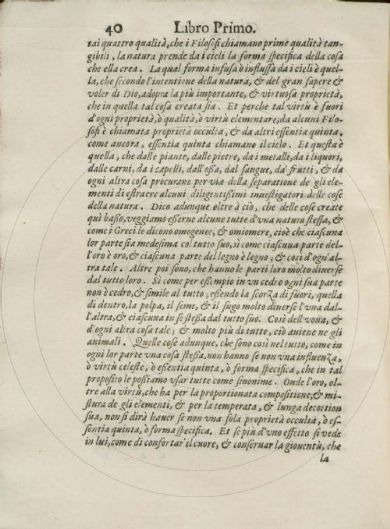 40 Libro Primo.
tai quattro qualità, che i Filosofi chiamano prime qualità tan-
gibili, la natura prende da i cieli la forma specifica della cosa
che ella crea. La qual forma infusa ò influssa da i cieli è quel-
la, che secondo l'intentione della natura, & del gran sapere &
voler di Dio, adopra la più importante, & virtuosa proprietà,
che in quella tal cosa creata sia. Et perche tal virtù è fuori
d'ogni proprietà, ò qualità, ò virtù elementare, da alcuni Filo-
sofi è chiamata proprietà occulta, & da altri essentia quinta,
come ancora, essentia quinta chiamano il cielo. Et questa è
quella, che dalle piante, dalle pietre, da i metalli, da i liquori,
dalle carni, da i capelli, dall'ossa, dal sangue, da' frutti, & da
ogni altra cosa procurano per via della separatione de gli ele-
menti di estraere alcuni diligentissimi inuestigatori delle cose
della natura. Dico adunque oltre à ciò, che delle cose create
quì basso, veggiamo esserne alcune tutte d'vna natura stessa, &
come i Greci le dicono omogenee, & omiomere, cioè che ciascuna
lor parte sia medesima col tutto suo, sì come ciascuna parte del-
l'oro è oro, & ciascuna parte del legno è legno; & così d'ogni al-
tra tale. Altre poi sono, che hanno le parti loro molto diuerse
dal tutto loro. Sì come per essempio in vn cedro ogni sua parte
non è cedro, & simile al tutto; essendo la scorza di fuori, quella
di dentro, la polpa, il seme, & il sugo molto diuerse l'vna dal-
l'altra, & ciascuna in se stessa dal tutto suo. Così dell'voua, &
d'ogni altra cosa tale; & molto più di tutte, ciò auiene ne gli
animali. Quelle cose adunque, che sono così nel tutto, come in
ogni lor parte vna cosa stessa, non hanno se non vna influenza,
ò virtù celeste, ò essentia quinta, ò forma specifica, che in tal
proposito le possiamo vsar tutte come sinonime. Onde l'oro, ol-
tre alla virtù, che ha per la proportionata compositione, & mi-
stura de gli elementi, & per la temperata, & lunga decottion
sua, non si dirà hauer se non vna sola proprietà occulta, ò es-
sentia quinta, ò forma specifica. Et se più d'vno effetto si vede
in lui, come di confortar'il cuore, & conseruar la giouentù, che
la